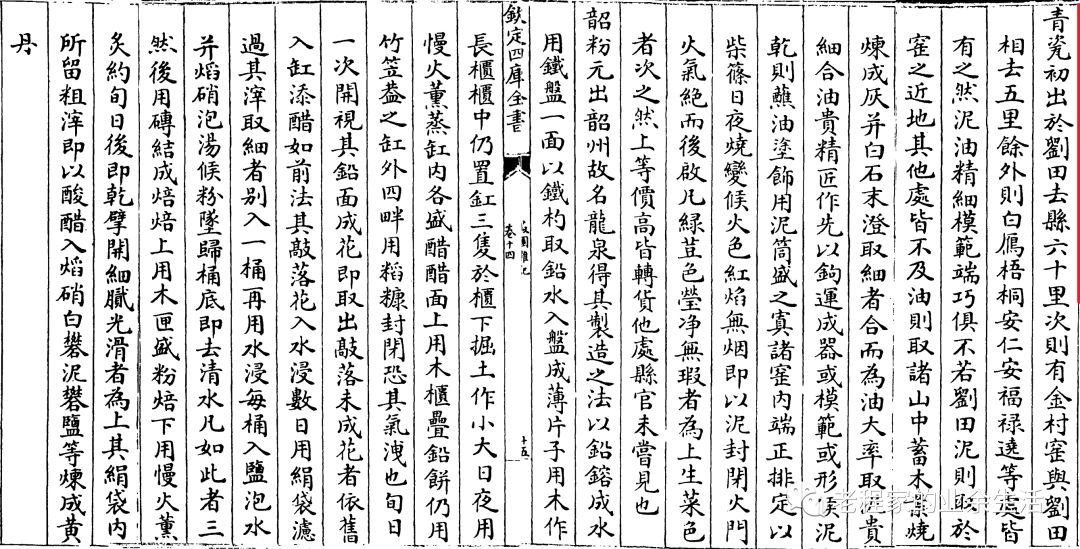 青瓷初出於劉田去縣六十里次則有金村窑與劉田
相去五里餘外則白鴈梧桐安仁安福禄遶等處皆
有之然泥油精細模範端巧俱不若劉田泥則取於
窑之近地其他處皆不及油則取諸山中蓄木葉燒
煉成灰并白石末澄取細者合而為油大率取泥貴
細合油貴精匠作先以鈎運成器或模範或形矦泥
乾則蘸油塗飾用泥筒盛之寘諸窑内端正排定以
柴篠日夜燒變候火色紅焰無烟即以泥封閉火門
火氣絶而後啟凡綠荳色瑩净無瑕者為上生菜色
者次之然上等價髙皆轉貨他處縣官未嘗見也
韶粉元出韶州故名龍泉得其製造之法以鉛鎔成水
用鐵盤一面以鐵杓取鉛水入盤成薄片子用木作
欽定四庫全書
菽園雜記
卷十四
十五
長櫃櫃中仍置缸三隻於櫃下掘土作小大日夜用
慢火薰蒸缸内各盛醋醋面上用木櫃疊鉛餅仍用
竹笠葢之缸外四畔用稻糠封閉恐其氣洩也旬日
一次開視其鉛面成花即取出敲落未成花者依舊
入缸添醋如前法其敲落花入水浸數日用絹袋濾
過其滓取細者别入一桶再用水浸每桶入鹽泡水
并熖硝泡湯候粉墜歸桶底即去清水凡如此者三
然後用磚結成焙焙上用木匣盛粉焙下用慢火薰
炙約旬日後即乾擘開細膩光滑者為上其絹袋内
所留粗滓即以酸醋入熖硝白礬泥礬鹽等煉成黄
丹
老程家的业余生活